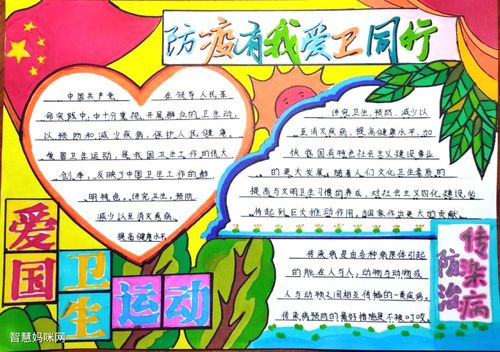 防疫有我爱卫同行
中国共产党 在领导人民革
命实践中,十分重视开展群众的卫生运动,
以预防和减少疾病,保护人民健康。
爱国卫生运动,是我国卫生工作的伟大
创举,反映了中国卫生工作的鲜
明特色。讲究卫生,预防
减少以至消灭疾病,
提高健康水平
讲究卫生,预防、减少以
至消灭疾病,提高健康水平,加
快我国有特色社会主义建设事业
的更大发展。随着人们文化卫生素质的
提高与文明卫生习惯的养成,对社会主义四化建设,必
将起到巨大推动作用,为国家作出更大的贡献。
爱国
卫生
运动
传染病是由各种病原体引起
的能在人与人、动物与动物或
人与动物之间相互传播的一类疾病。
传染病预防的最好措施是不被叮咬。
传染病
防治
智慧妈咪网